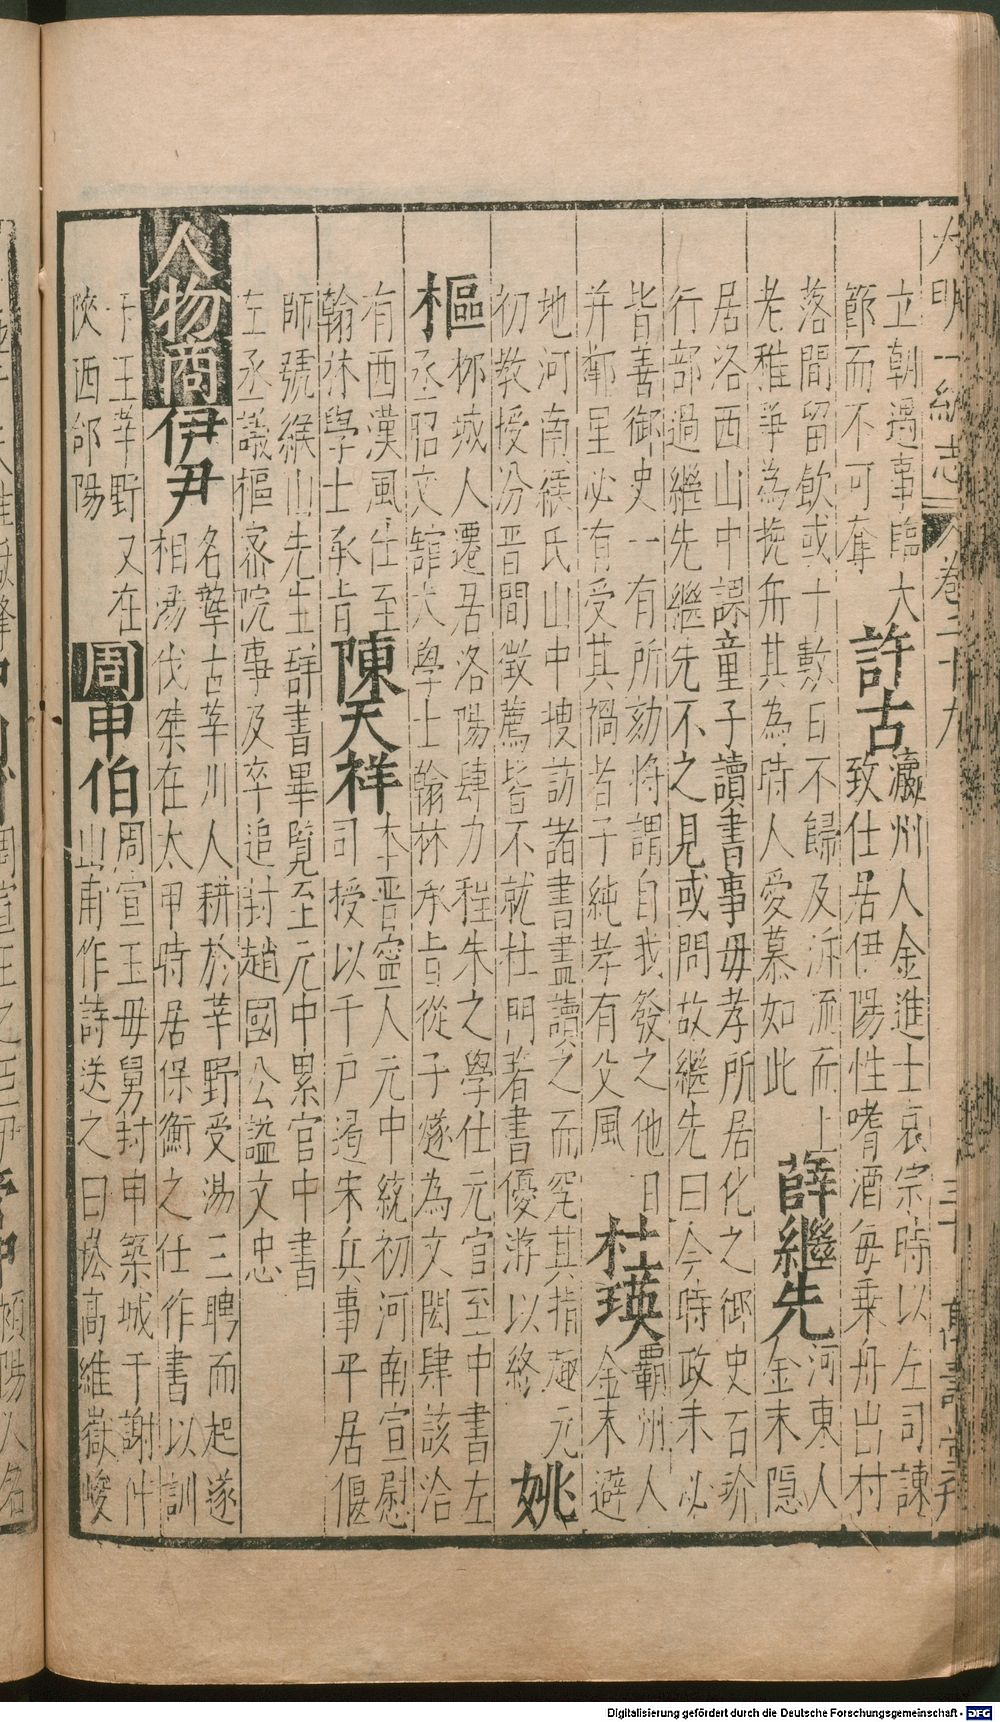 大明一統志 卷二十九 三十
立朝遇事臨大
節而不可奪
許古
瀛州人金進士哀宗時以左司諫
致仕居伊陽性嗜酒每乗舟出村
落間留飲或十數日不歸及泝流而上
老稚爭為挽舟其為時人愛慕如此
薛繼先
河東人
金末隱
居洛西山中課童子讀書事毋孝所居化之御史石玠
行部過繼先繼先不之見或問故繼先曰今時政未必
皆善御史一有所劾將謂自我發之他日
并鄰里必有受其禍者子純孝有父風
杜瑛
霸州人
金末避
地河南緱氏山中搜訪諸書盡讀之而究其指趣元
初教授汾晉間徵薦皆不就杜門著書優游以終
姚
樞
柳城人遷居洛陽肆力程朱之學仕元官至中書左
丞昭文館大學士翰林承旨從子燧為文閎肆該洽
有西漢風仕至
翰林學士承旨
陳天祥
本晉寧人元中統初河南宣慰
司授以千戶遏宋兵事平居偃
師號緱山先生群書畢覽至元中累官中書
左丞議樞密院事及卒追封趙國公謚文忠
人物商伊尹
名摯古莘川人耕於莘野受湯三聘而起遂
相湯伐桀在太甲時居保衡之任作書以訓
于王莘野又在
陝西郃陽
周申伯
周宣王毋舅封申築城于謝仲
山甫作詩送之曰崧高維嶽峻
Digitalisierung gefördert durch die Deutsche Forschungsgemeinschaft - DFG